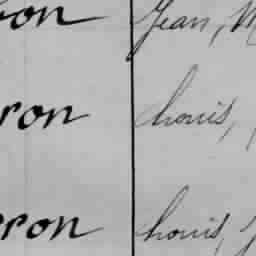 on Jean, M
ron Louis,
ron Louis, J